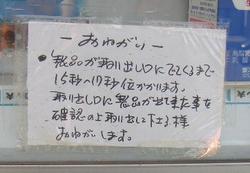 ーおねがいー
・製品が取り出し口にでてくるまで
15秒〜17秒位かかります。
取り出し口に製品が出て来た事を
確認の上取り出して下さる様
おねがいします。